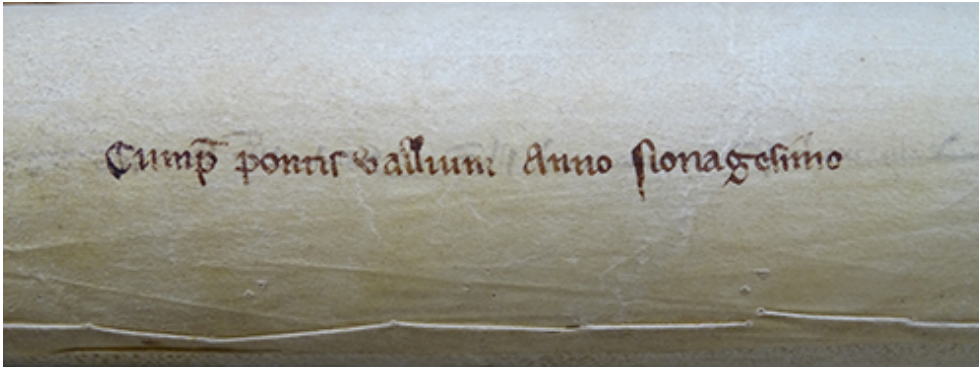 Cump̄ pontis vallium Anno nonagesimo